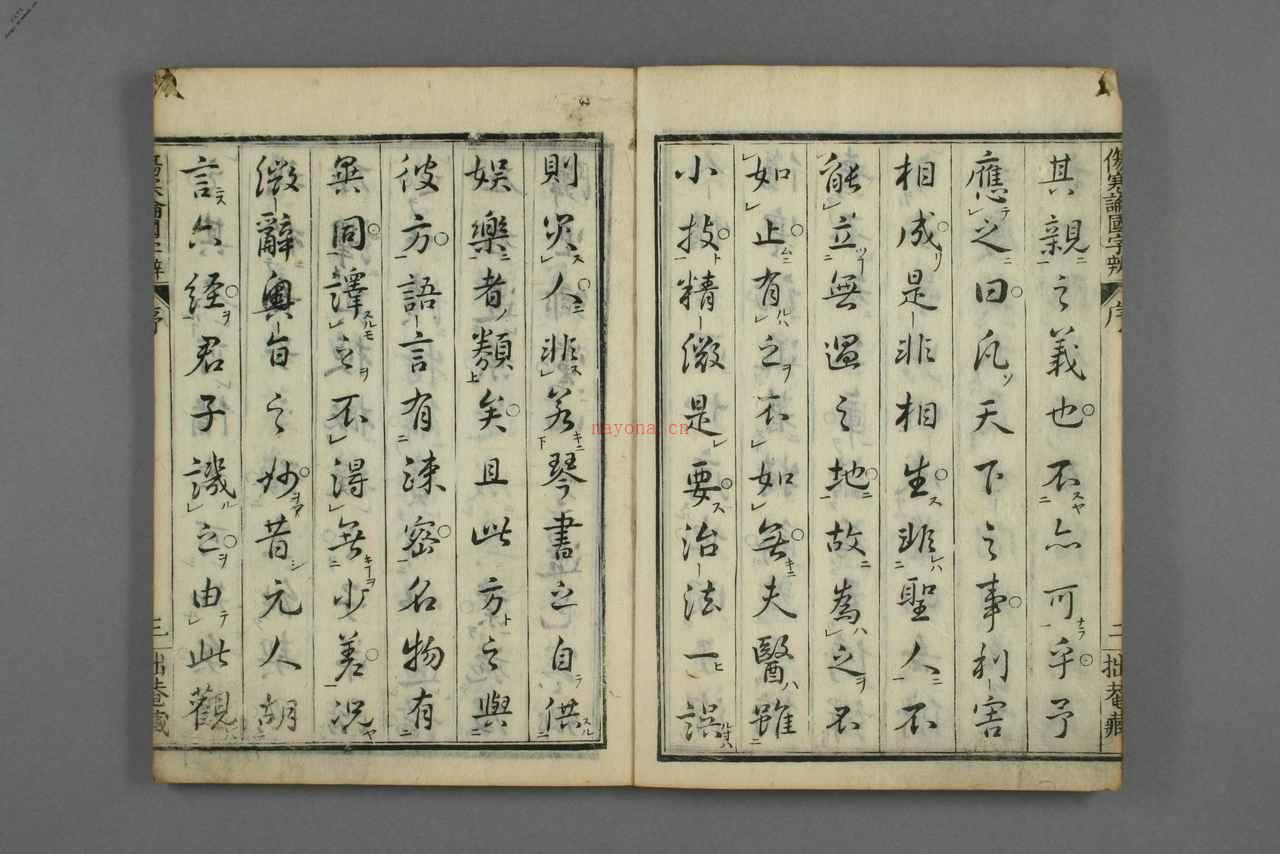 傷寒論國字辨 序 二 拙菴藏
其親之義也不亦可乎予
應之曰凡天下之事利害
相成是非相生非聖人不
能立無過之地故為之不
如止有之不如無夫醫雖
小技精微是要治法一誤
則災人非若琴書之自供
娯樂者類矣且此方之與
彼方語言有疎密名物有
異同譯之不得無少差況
微辭奧旨之妙昔元人胡
言六経君子譏之由此觀
傷寒論國字辨 序 三 拙菴藏
nayona.cn